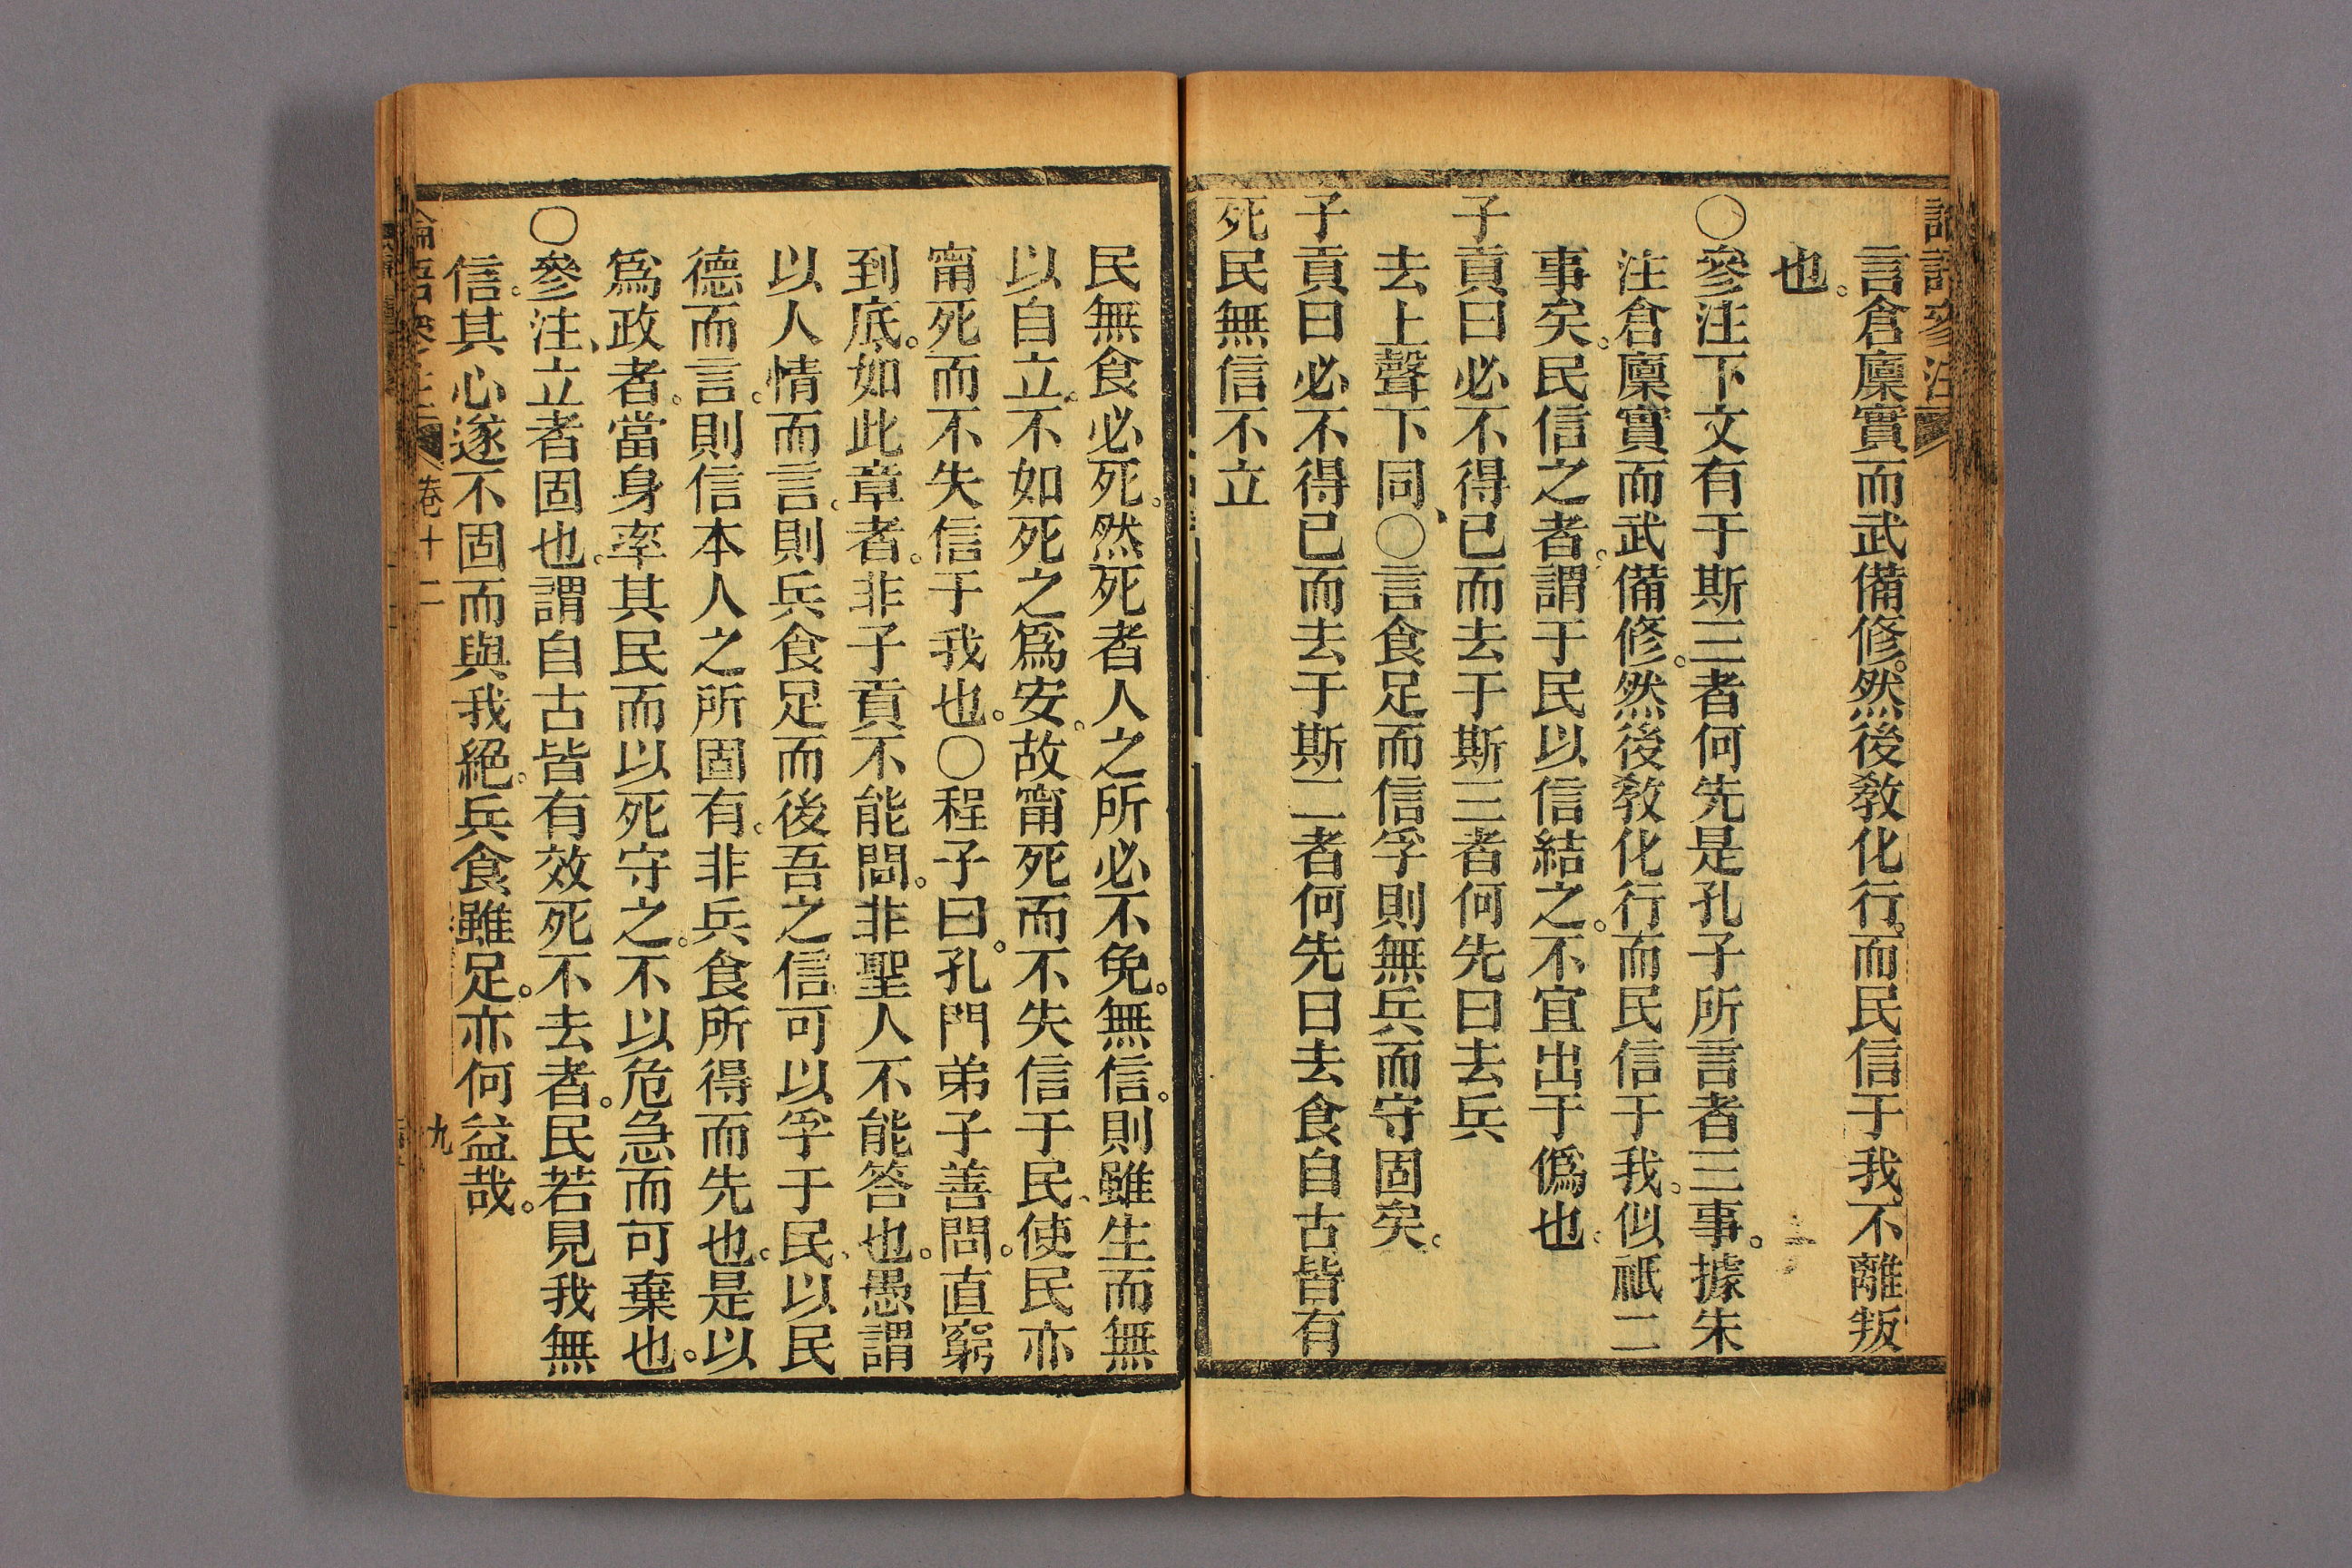 論語參注
言倉廩實而武備修。然後教化行。而民信于我。不離叛
也。
○參注下文有于斯三者何先是孔子所言者三事。據朱
注倉廩實而武備修。然後教化行而民信于我。似祇二
事矣。民信之者。謂于民以信結之。不宜出于僞也。
子貢曰必不得已而去于斯三者何先曰去兵
去上聲下同○言食足而信孚則無兵而守固矣。
子貢曰必不得已而去于斯二者何先曰去食自古皆有
死民無信不立
民無食必死。然死者人之所必不免。無信。則雖生而無
以自立。不如死之爲安。故甯死而不失信于民、使民亦
甯死而不失信于我也。○程子曰。孔門弟子善問。直窮
到底。如此章者。非子貢不能問。非聖人不能答也。愚謂
以人情而言。則兵食足而後吾之信可以孚于民、以民
德而言。則信本人之所固有。非兵食所得而先也。是以
爲政者。當身率其民而以死守之。不以危急而可棄也。
○參注、立者固也。謂自古皆有效死不去者。民若見我無
信。其心遂不固而與我絕。兵食雖足。亦何益哉。
論語參注 卷十二 九